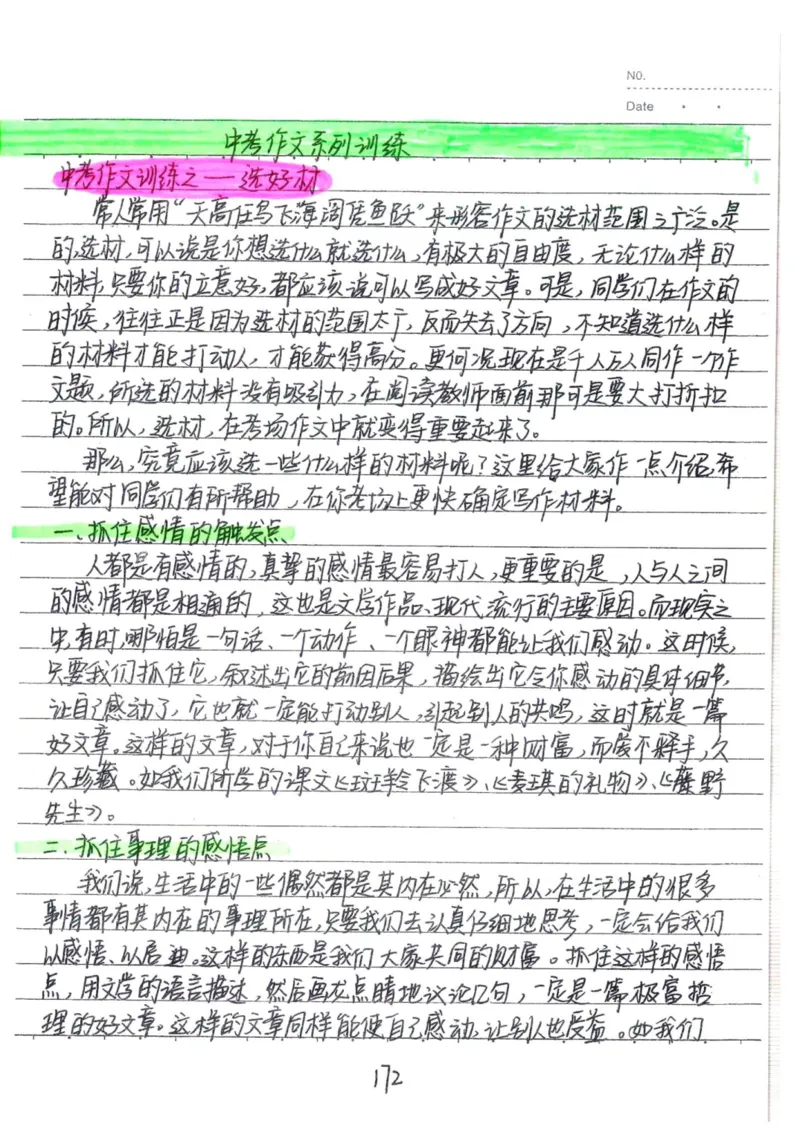 NO.
Date
中考作文系列训练
中考作文训练之一——选好材
常人常用“天高任鸟飞海阔凭鱼跃”来形容作文的选材范围之广泛。是
的,选材,可以说是你想选什么就选什么,有极大的自由度,无论什么样的
材料,只要你的立意好,都应该说可以写成好文章。可是,同学们在作文的
时候,往往正是因为选材的范围太广,反而失去了方向,不知道选什么样
的材料才能打动人,才能获得高分。更何况现在是千人万人同作一个作
文题,所选的材料没有吸引力,在阅读教师面前那可是要大打折扣
的。所以,选材,在考场作文中就变得重要起来了。
那么,究竟应该选一些什么样的材料呢?这里给大家作一点介绍,希
望能对同学们有所帮助,在你考场上更快确定写作材料。
一、抓住感情的触发点
人都是有感情的,真挚的感情最容易打人,更重要的是,人与人之间
的感情都是相通的,这也是文学作品、现代流行的主要原因。而现实之
中,有时,哪怕是一句话、一个动作、一个眼神都能让我们感动。这时候,
只要我们抓住它,叙述出它的前因后果,描绘出它令你感动的具体细节,
让自己感动了,它也就一定能打动别人,引起别人的共鸣,这时就是一篇
好文章。这样的文章,对于你自己来说也一定是一种财富,而爱不释手,久
久珍藏。如我们所学的课文《斑羚飞渡》、《麦琪的礼物》、《藤野
先生》。
二、抓住事理的感悟点
我们说,生活中的一些偶然都是其内在必然,所以,在生活中的很多
事情都有其内在的事理所在,只要我们去认真仔细地思考,一定会给我们
以感悟、以启迪。这样的东西是我们大家共同的财富。抓住这样的感悟
点,用文学的语言描述,然后画龙点睛地议论几句,一定是一篇极富哲
理的好文章。这样的文章同样能使自己感动,让别人也受益。如我们
172